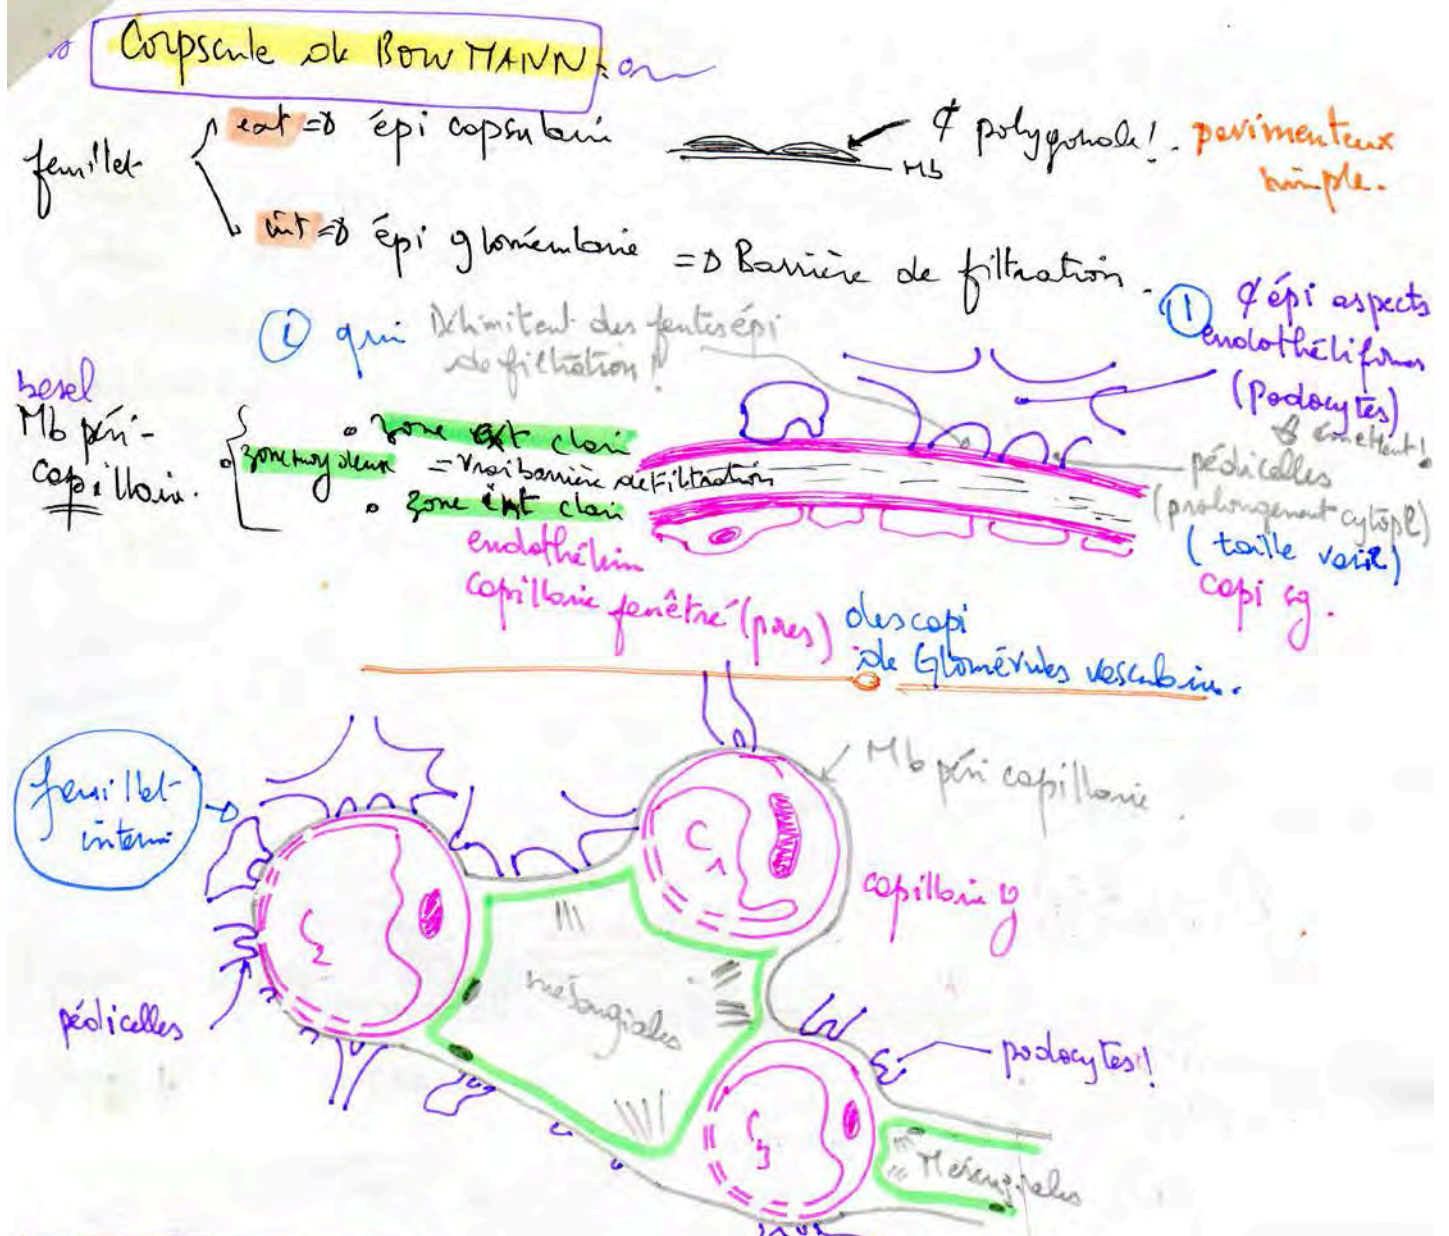 Corpscule de BOWMANN:
feuillet
ext => épi capsulaire
¢ polygonale!. pavimenteux
simple.
Mb
int => épi glomérulaire => Barrière de filtration.
① ¢ épi aspects
endothéliformes
(Podocytes)
émettent!
② qui Délimitent des fentes épi
de filtration!
pédicelles
(prolongement cytopl)
(taille varie)
basal
Mb péri-
capillaire.
• zone ext claire
• zone moy dense = vrai barrière de filtration
• zone int claire
endothélium
capillaire fenêtré (pores)
capi sg.
des capi
de Glomérules vasculaire.
feuillet
interne
Mb péri capillaire
C1
capillaire sg
C2
mésangiales
pédicelles
podocytes!
C3
Mésangiales